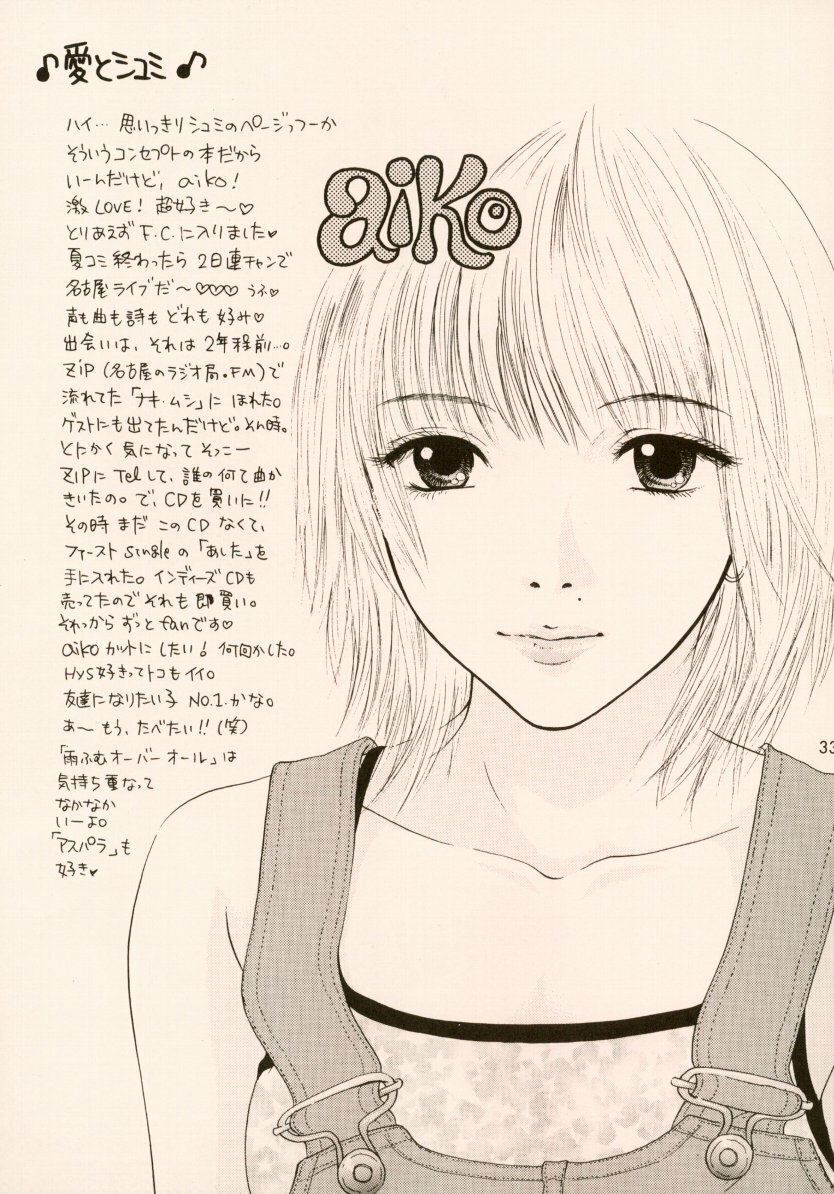 ♪愛とシュミ♪
ハイ… 思いっきりシュミのページっつーか
そういうコンセプトの本だから
いーんだけど, aiko!
激LOVE! 超好き〜♡
とりあえずF.C.に入りました♥
夏コミ終わったら 2日連チャンで
名古屋ライブだ〜♡♡♡ うふ♥
声も曲も詩も どれも好み♡
出会いは、それは 2年程前…。
ZIP (名古屋のラジオ局.FM)で
流れてた「ナキ・ムシ」に ほれた。
ゲストにも出てたんだけど。そん時。
とにかく気になって そっこー
ZIPに Telして、誰の何て曲か
きいたの。で、CDを買いに!!
その時 まだ このCD なくて、
ファースト Singleの「あした」を
手に入れた。インディーズCDも
売ってたので それも即買い。
それっから ずっとfanです♡
aikoカットにしたい! 何回かした。
HYS好きってトコもイイ。
友達になりたい子 NO.1.かな。
あ〜もう、たべたい!!(笑)
「雨ふむオーバーオール」は
気持ち重なって
なかなか
いーよ。
「アスパラ」も
好き♥
aiko
33